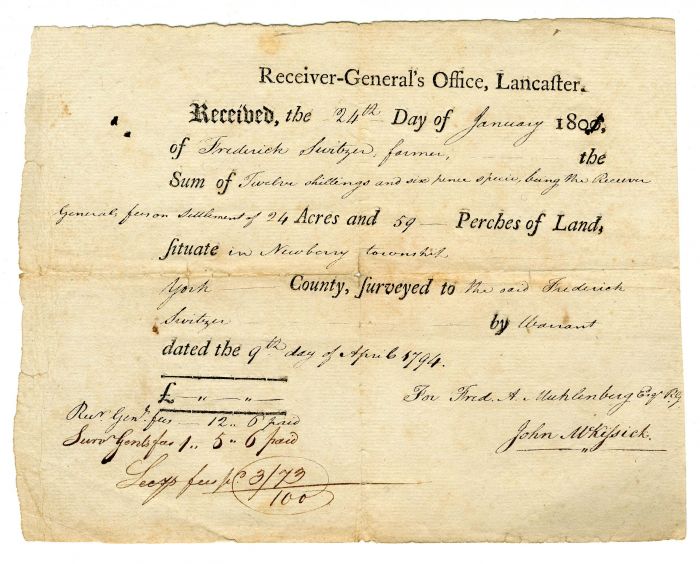 Receiver-General's Office, Lancaster.
Received, the 24th Day of January 180
of Frederick Switzer, farmer, the
Sum of Twelve shillings and six pence specie, being the Receiver
Generals fees on Settlement of 24 Acres and 59 — Perches of Land,
situate in Newberry township
York County, surveyed to the said Frederick
Switzer by Warrant
dated the 9th day of April 1794.
£ — „ — „ —
For Fred. A. Muhlenberg Esqr R.G.
Recr Genl fees — 12 „ 6 paid
John McKissick.
Survr Genls fees 1 „ 5 „ 6 paid
Secys fees pd 3/73
100